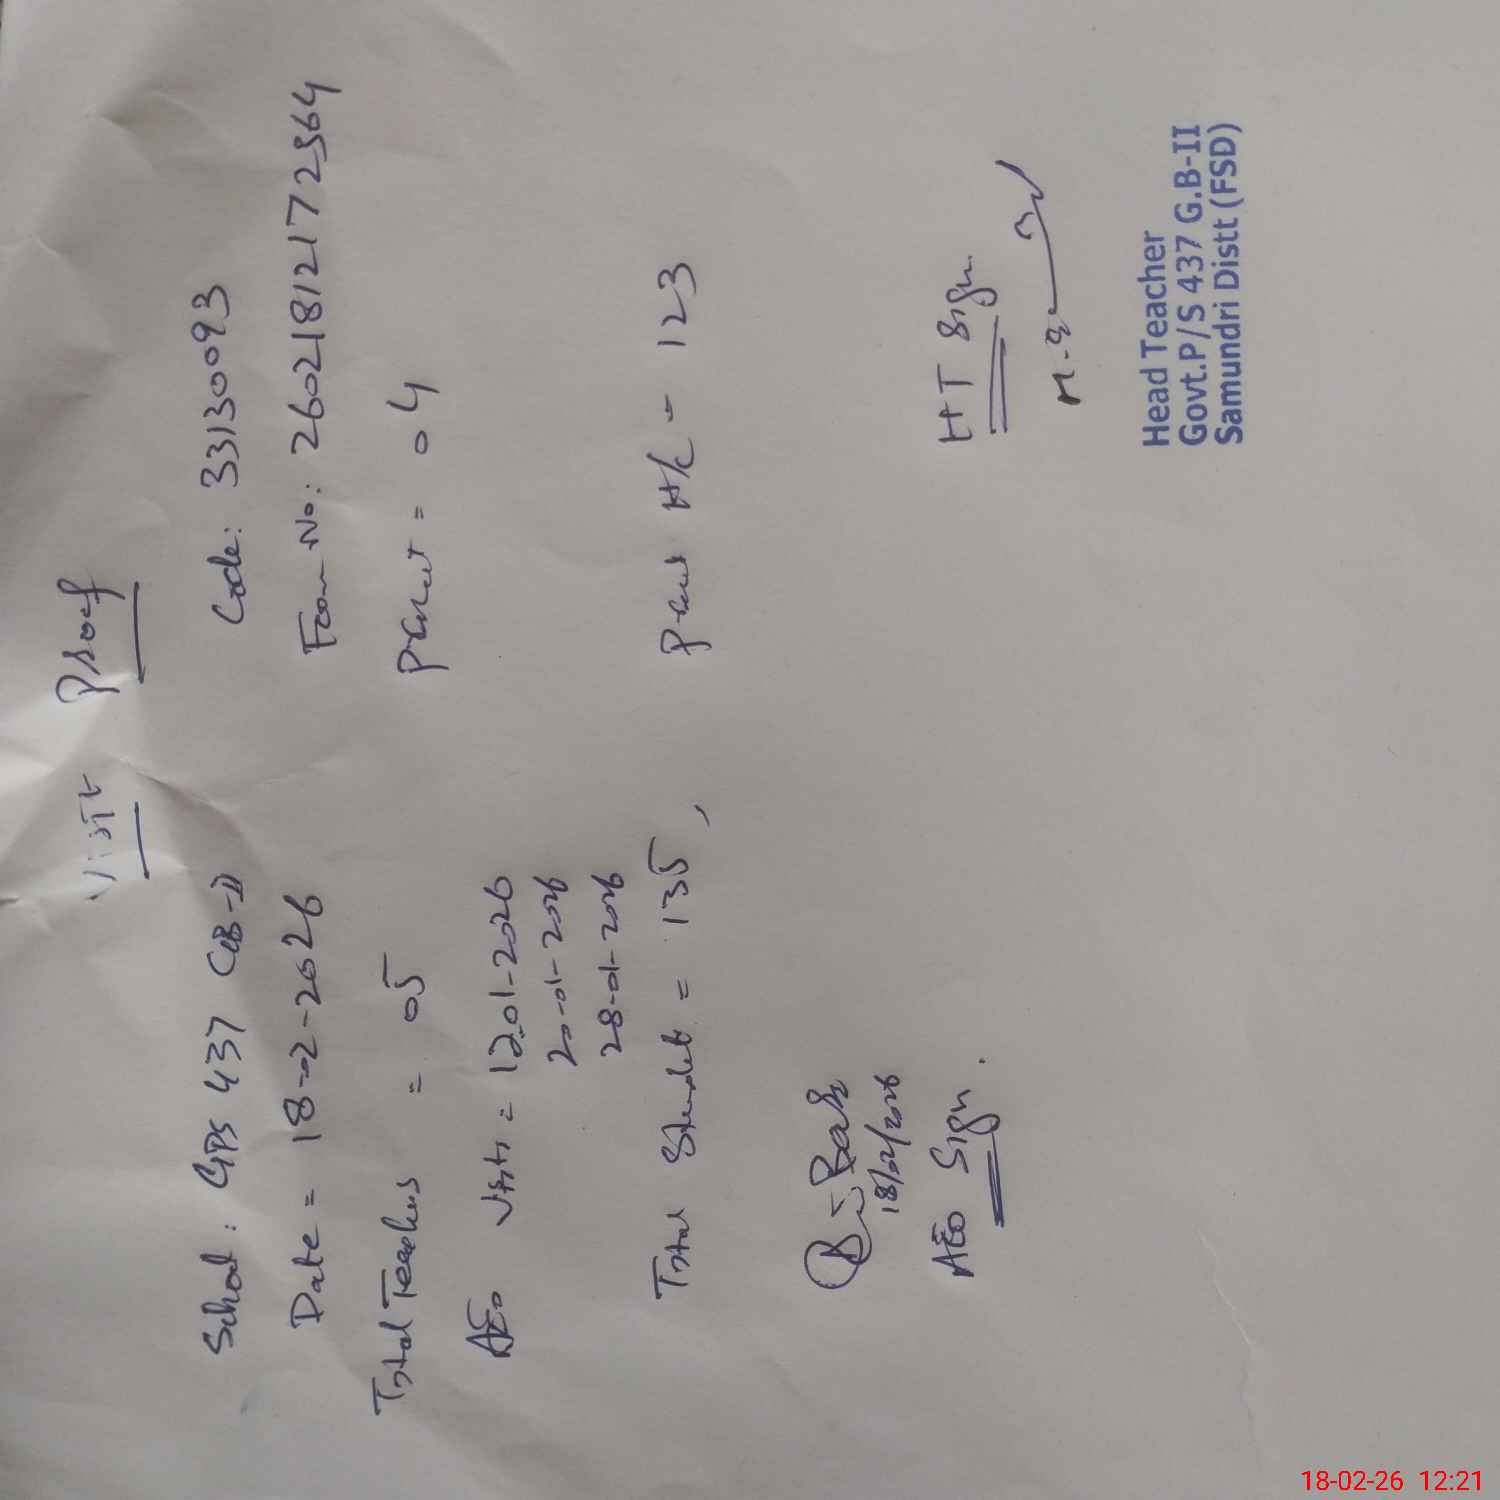 Visit Proof
School: GPS 437 GB-II Code: 33130093
Date = 18-02-2026 Form No: 260218121772564
Total Teachers = 05 Present = 04
AEO Visits = 12-01-2026
20-01-2026
28-01-2026
Total Students = 135, Present = 123
18/02/2026
AEO Sign.
HT Sign
Head Teacher
Govt.P/S 437 G.B-II
Samundri Distt (FSD)
18-02-26 12:21